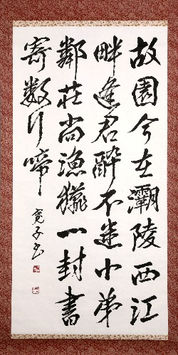 故園今在灞陵西江
畔逢君醉不迷小弟
鄰荘尚漁獵一封書
寄数行啼
寛子書